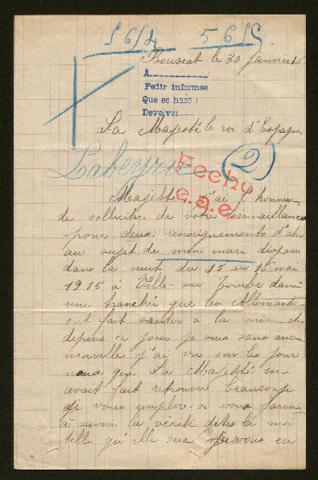 5612 5612
Bouscat le 30 janvier
A
Pedir informes
Que se haso:
Devolver
La Majesté le roi d'Espagne
Labeyrie (2)
Fecho
e.a.e.
Majesté j'ai l'honneur
de solliciter de votre bienveillance
pour deux renseignements d'abord
au sujet de mon mari disparu
dans la nuit du 15 au 16 mai
1915 à Ville sur Tourbe dans
une tranché que les Allemands
ont fait sauter à la mine et
depuis ce jour je suis sans aucune
nouvelle j'ai vu sur les jour
naux que La Majesté en
avait fait retrouver beaucoup
je vous implore si vous parvenez
à savoir la vérité dites la moi
telle qu'elle sera